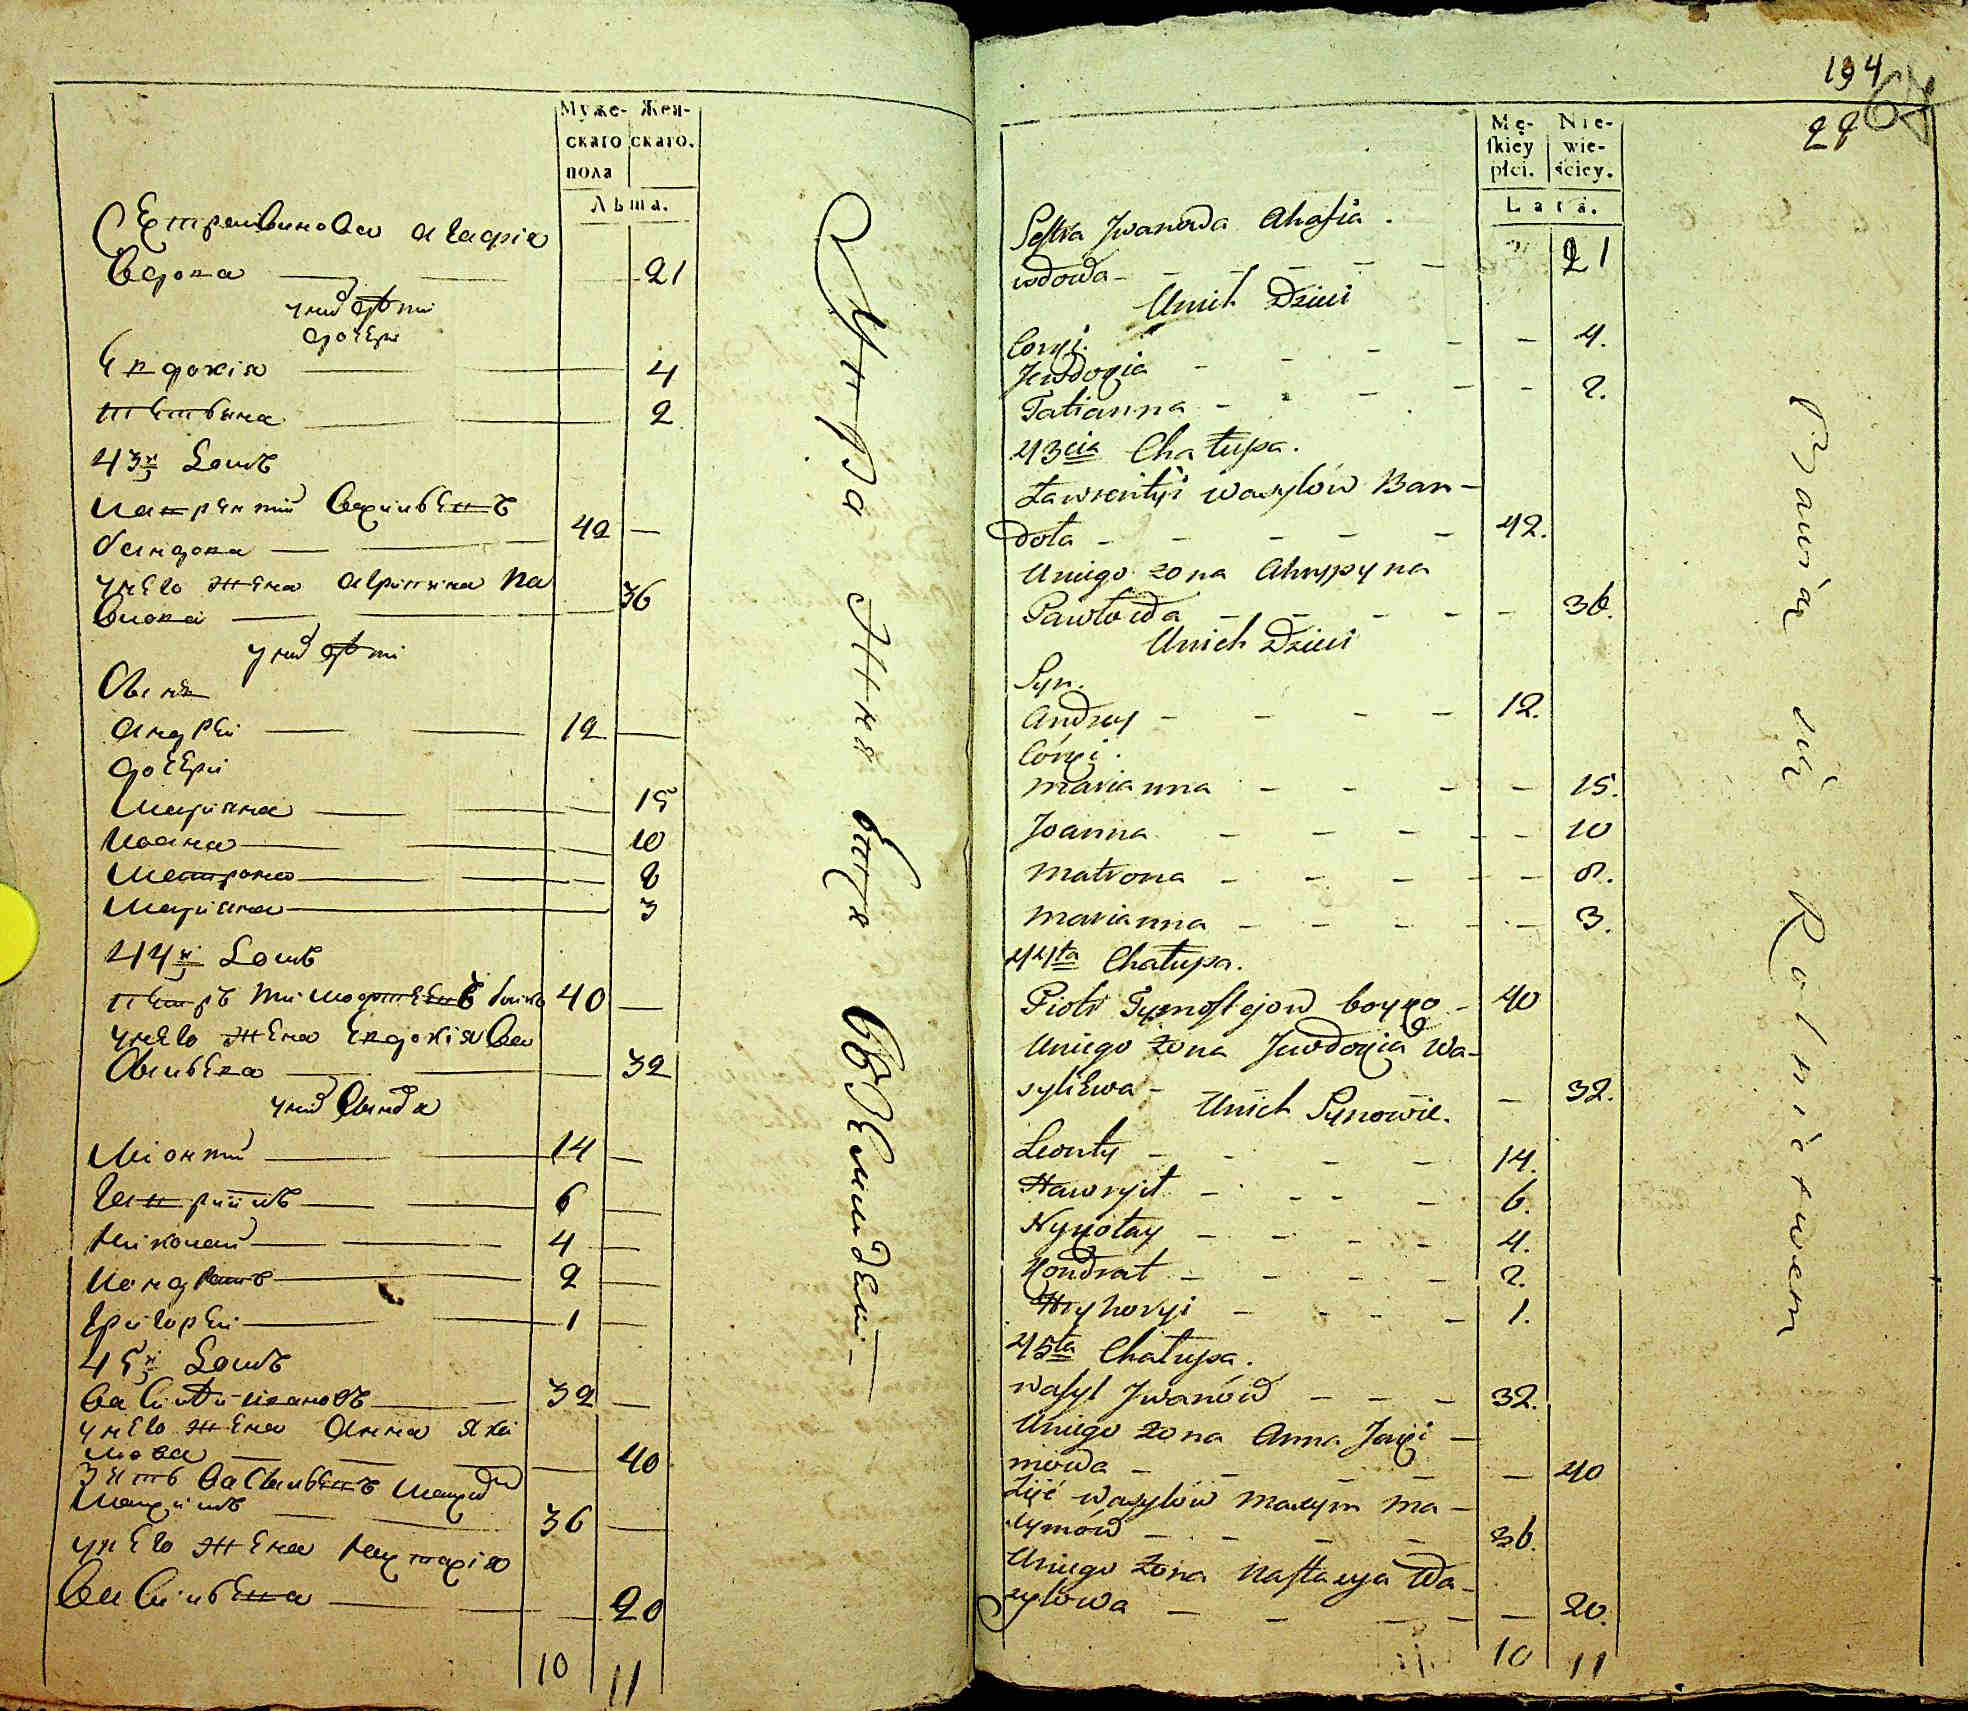 Муже-
скаго
пола
Жен-
скаго.
Лѣта.
Сестра Иванова Агафія
вдова 21
у них дѣти
дочери
Евдокія 4
татьяна 2
43й Домъ
лаврентий Васильевъ
бандола 42
у него жена Агрипина Па
влова 36
у них дѣти
Сынъ
андрей 12
дочери
Марiяна 15
Иоана 10
Матрона 8
Марiяна 3
44й Домъ
петръ тимофтеевъ бойко 40
у него жена Евдокія Ва
сильева 32
у них Синове
Леонтий 14
Гаврийлъ 6
Николай 4
Кондратъ 2
Григорей 1
45й Домъ
Василий Ивановъ 32
у него жена Анна Яки
мова 40
Зять Васильевъ Максим
Максимовъ 36
у него жена Настасія
Васильева 20
10 11
194
Mę-
ſkiey
płci.
Nie-
wie-
ściey.
Lata.
Sestra Jwanowa Ahafia
wdowa 21
Unich Dzieci
Coryi.
Jewdoxia 4.
Tatianna 2.
43cia Chałupa.
Ławrentyi wasylów Ban-
doła 42.
Uniego żona Ahrypyna
Pawłowa 36.
Unich Dzieci
Syn.
Andrey 12.
Córyi.
marianna 15.
Joanna 10
matrona 8.
marianna 3.
44ta Chałupa.
Piotr Tymoftejow boyko 40
Uniego żona Jewdoxia Wa-
syliewa 32.
Unich Synowie.
Leonty 14.
Hawryił 6.
Nykołay 4.
Kondrat 2.
Hryhoryi 1.
45ta Chałupa.
wasyl Jwanów 32.
Uniego żona Anna Jaki-
mowa 40
Zięć wasylów maxym ma-
xymów 36.
Uniego żona Nastazya Wa-
zylowa 20.
10 11
Bawią się Rolnictwem